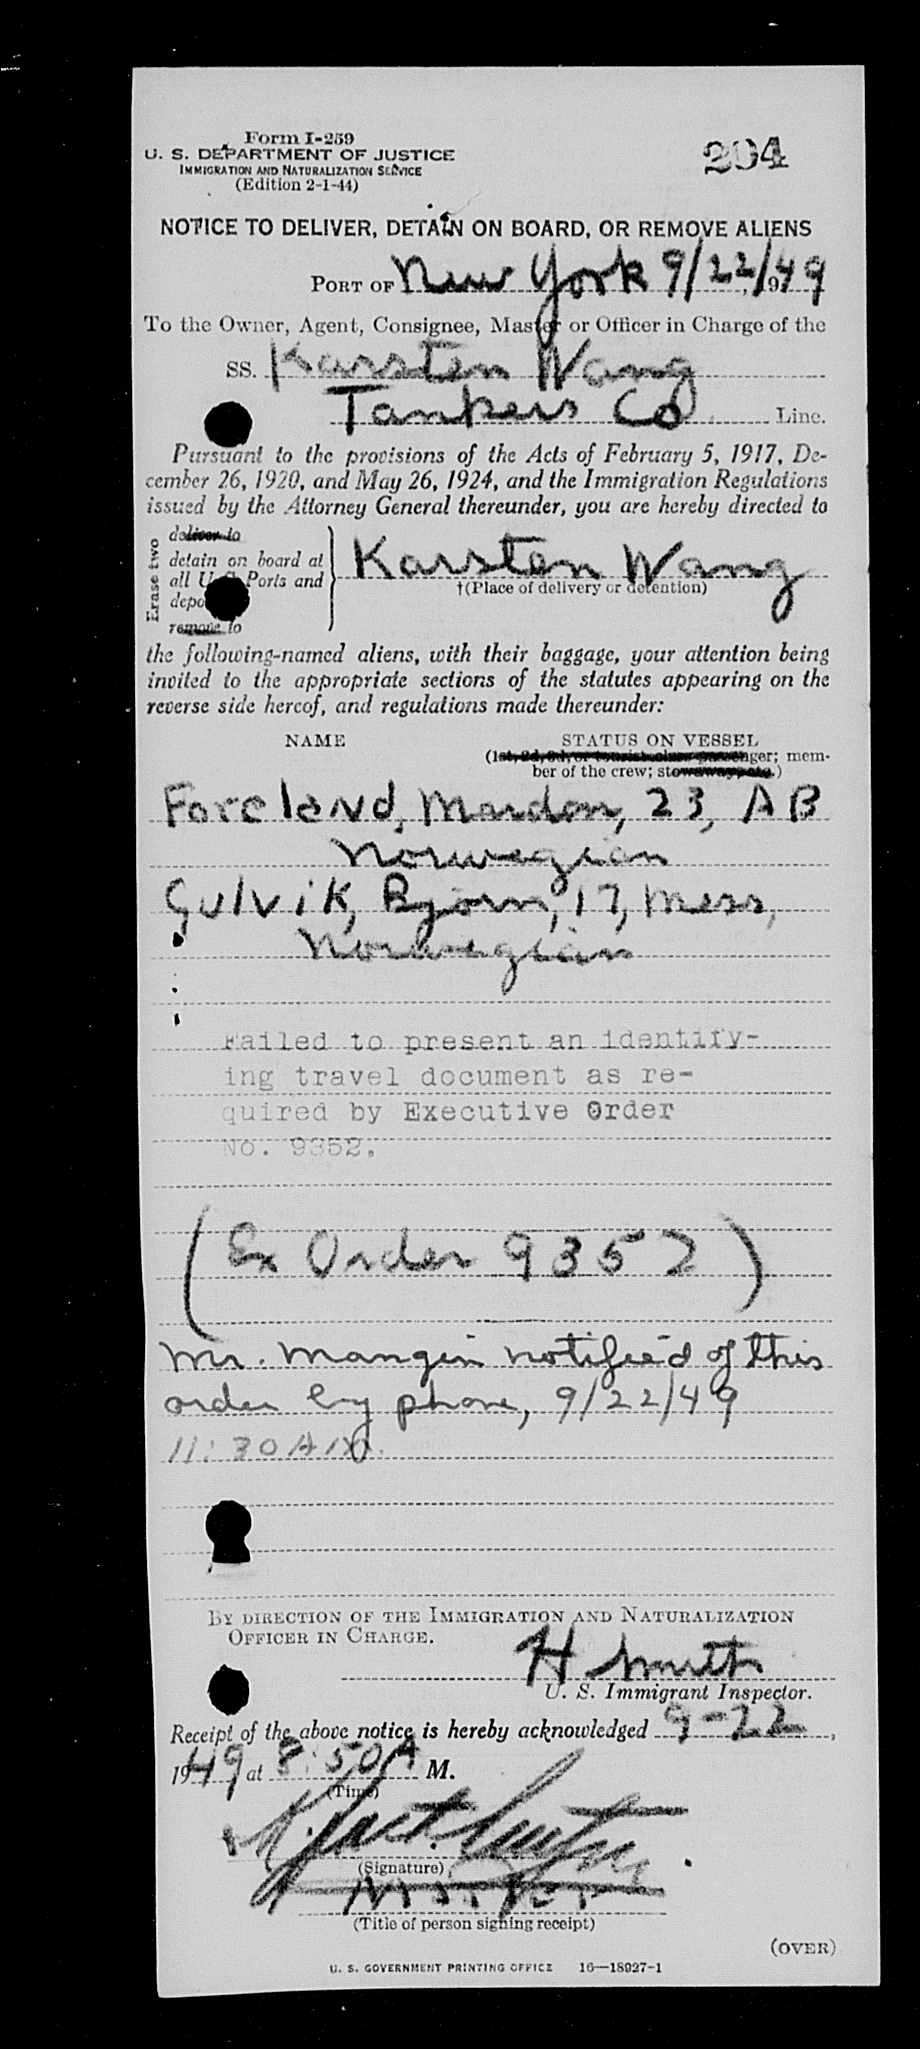 Form I-259
U. S. DEPARTMENT OF JUSTICE
IMMIGRATION AND NATURALIZATION SERVICE
(Edition 2-1-44)
204
NOTICE TO DELIVER, DETAIN ON BOARD, OR REMOVE ALIENS
PORT OF New York 9/22/, 1949
To the Owner, Agent, Consignee, Master or Officer in Charge of the
SS. Karsten Wang
Tankers Co Line.
Pursuant to the provisions of the Acts of February 5, 1917, De-
cember 26, 1920, and May 26, 1924, and the Immigration Regulations
issued by the Attorney General thereunder, you are hereby directed to
Erase two
deliver to
detain on board at
all U. S. Ports and
depo
remove to
Karsten Wang
†(Place of delivery or detention)
the following-named aliens, with their baggage, your attention being
invited to the appropriate sections of the statutes appearing on the
reverse side hereof, and regulations made thereunder:
NAME STATUS ON VESSEL
(1st, 2d, 3d, or tourist class passenger; mem-
ber of the crew; stowaway, etc.)
Foreland, Mardon, 23, AB
Norwegian
Gulvik, Bjorn, 17, Mess,
Norwegian
Failed to present an identify-
ing travel document as re-
quired by Executive Order
No. 9352.
(Ex Order 9352)
Mr. Mangin notified of this
order by phone, 9/22/49
11:30 AM.
BY DIRECTION OF THE IMMIGRATION AND NATURALIZATION
OFFICER IN CHARGE.
H Smith
U. S. Immigrant Inspector.
Receipt of the above notice is hereby acknowledged 9-22,
1949 at 8:50 A M.
(Time)
(Signature)
Master
(Title of person signing receipt)
(OVER)
U. S. GOVERNMENT PRINTING OFFICE 16—18927-1